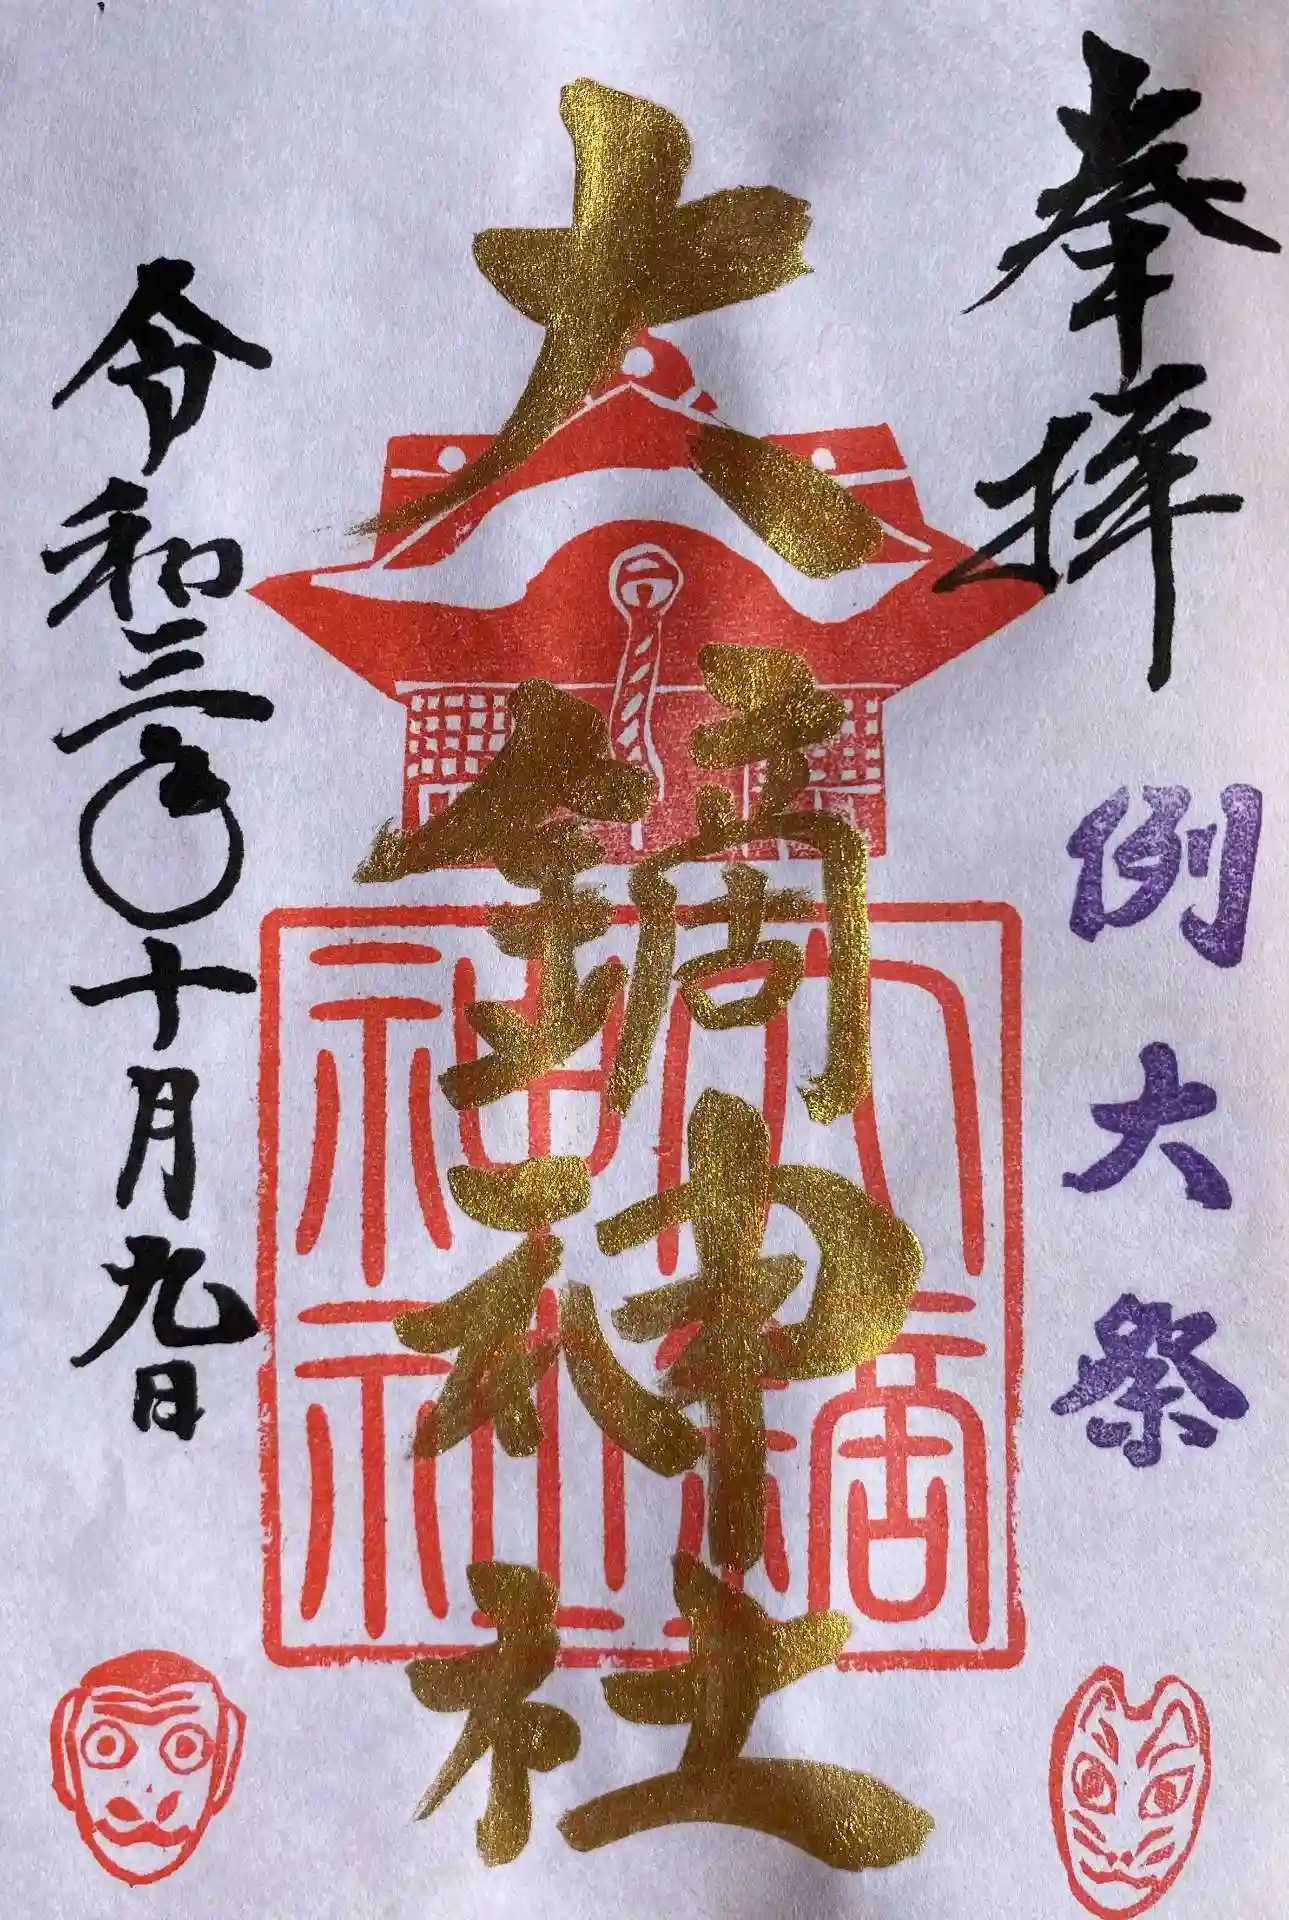 奉拝
例大祭
大鏑神社
大鏑神社
令和三年十月九日